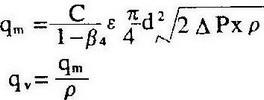 qₘ = C/(1-β₄) ε π/4 d² √(2 ΔP x ρ)
qᵥ = qₘ/ρ